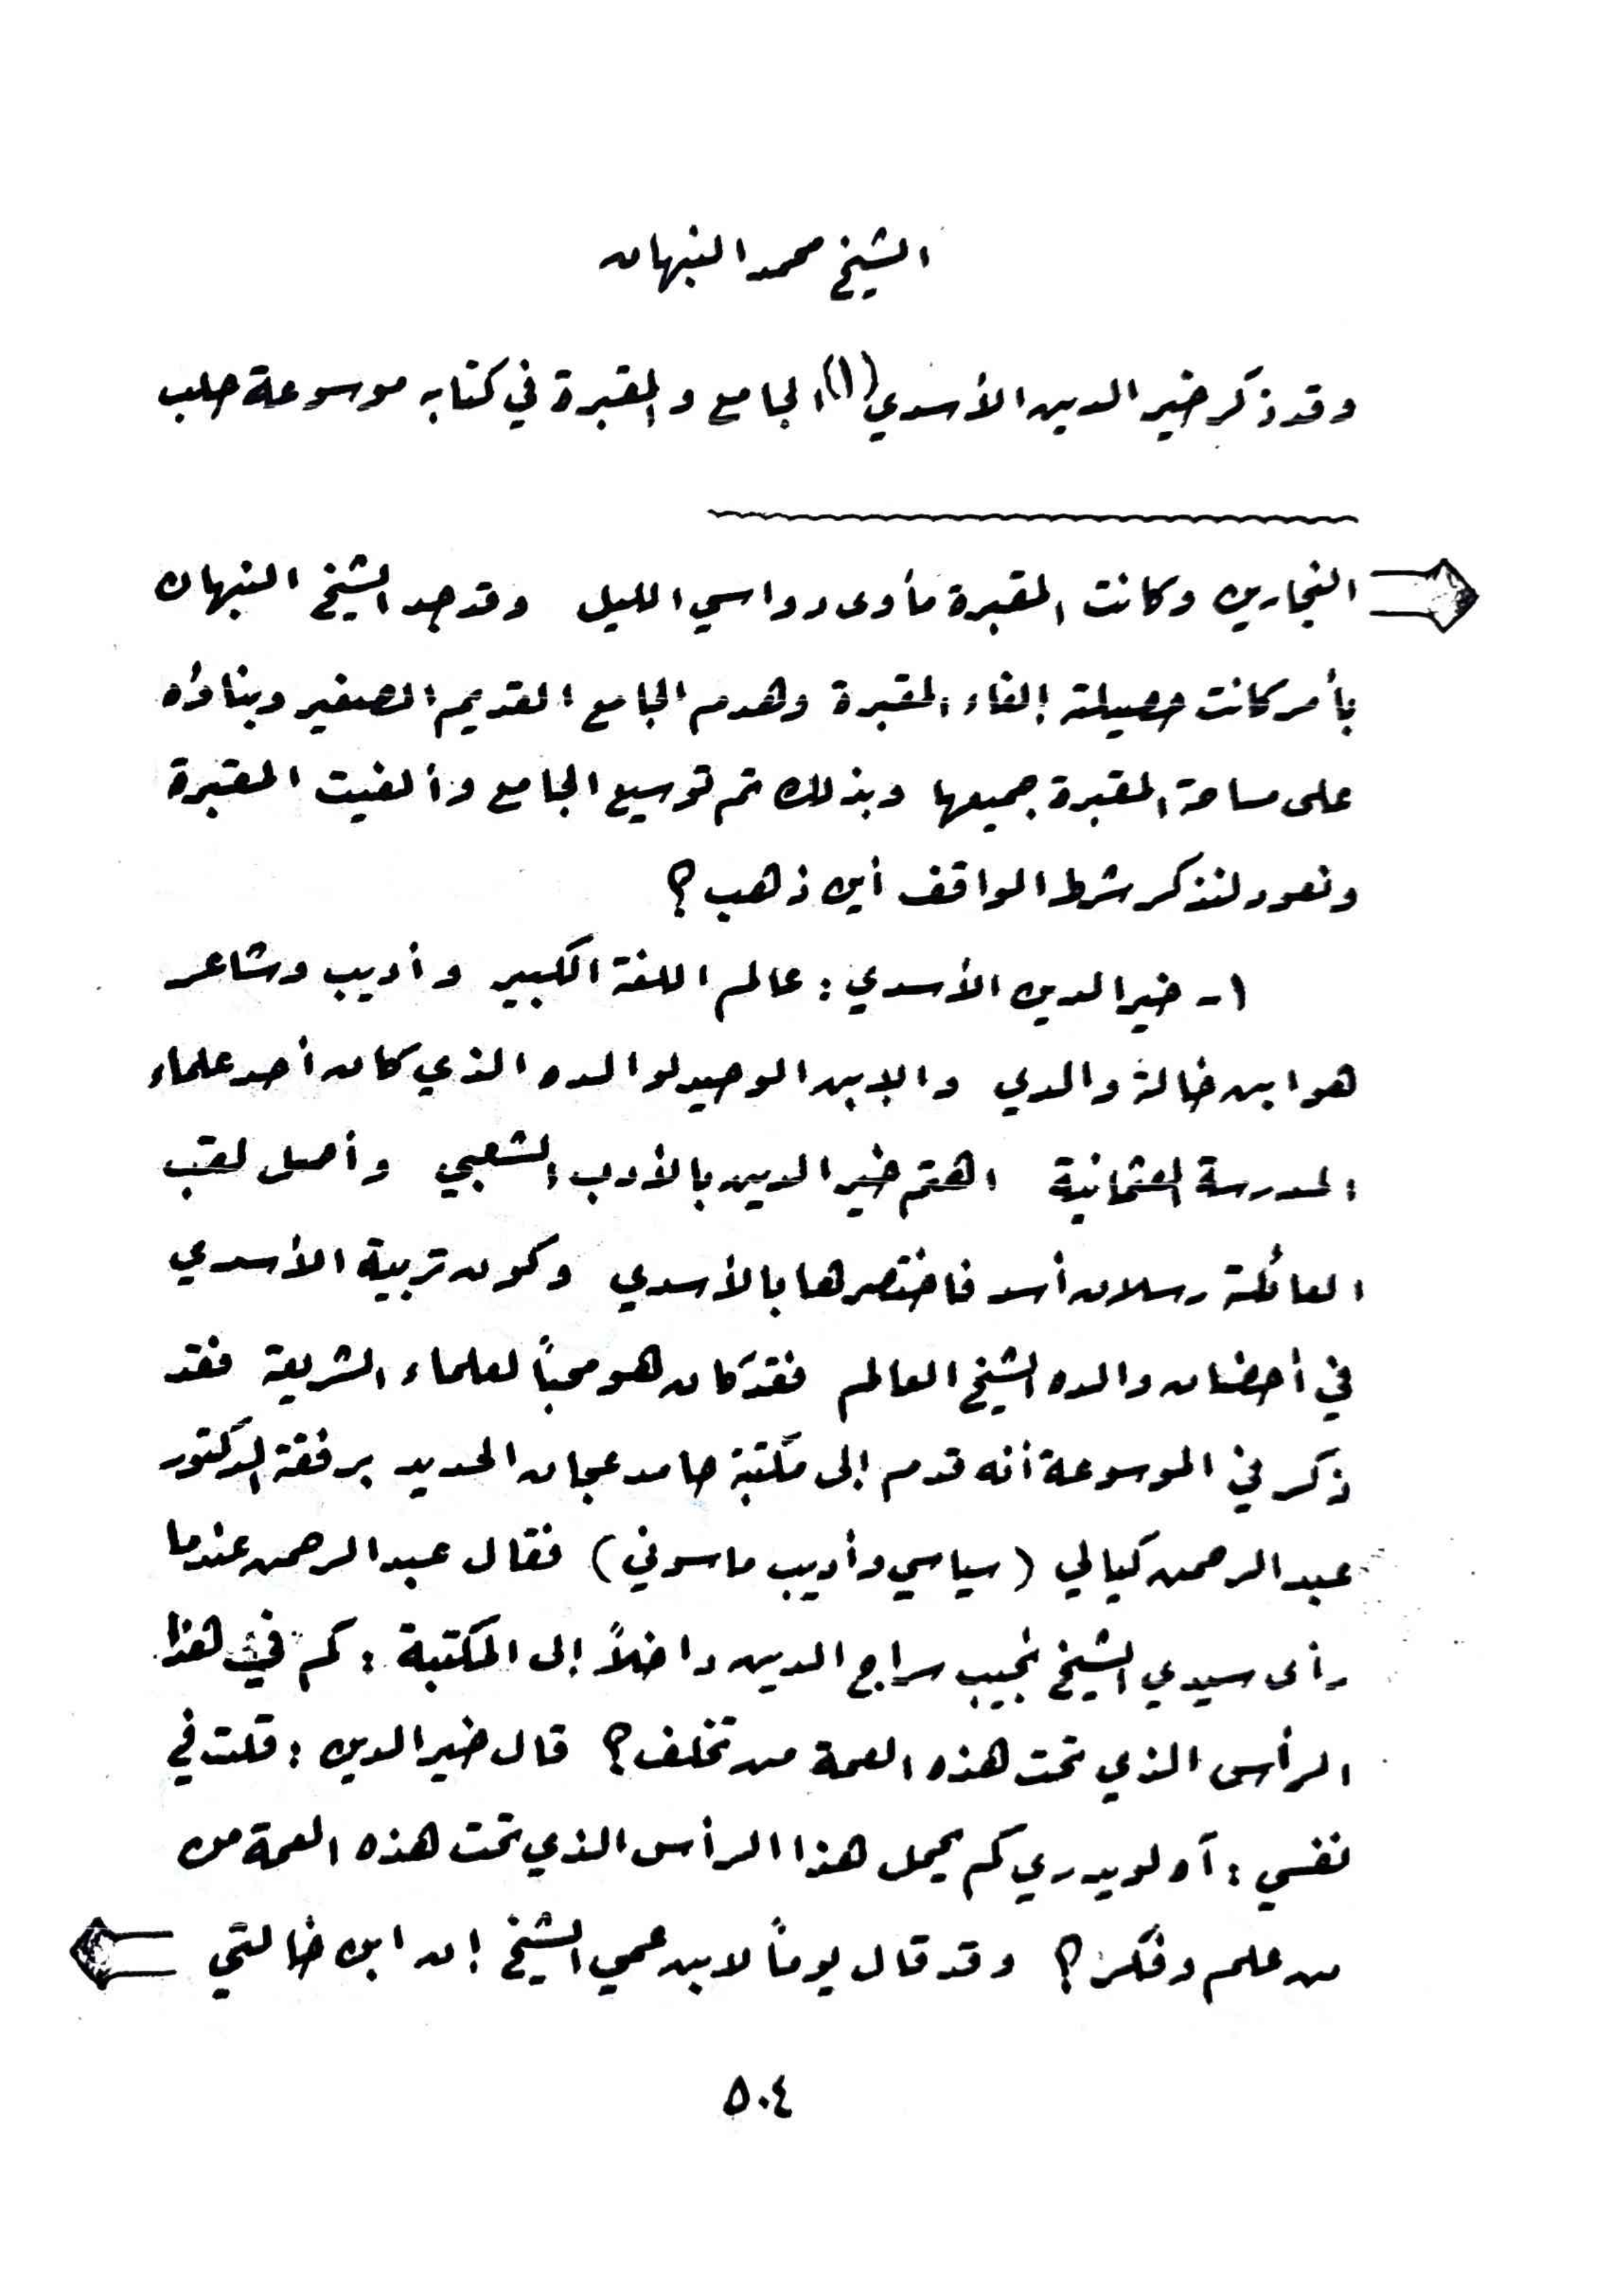 الشيخ محمد النبهان
وقد ذكر خير الدين الأسدي (١) الجامع والمقبرة في كتابه موسوعة حلب
النجارين وكانت المقبرة مأوى دواسي الليل وقد جد الشيخ النبهان
بأمر كانت حصيلة إلغاء المقبرة وهدم الجامع القديم الصغير وبناؤه
على مساحة المقبرة جميعها وبذلك تم توسيع الجامع وألغيت المقبرة
ونعود لنذكر شرط الواقف أين ذهب؟
١- خير الدين الأسدي: عالم اللغة الكبير وأديب وشاعر
هو ابن خالة والدي والابن الوحيد لوالده الذي كان أحد علماء
المدرسة العثمانية اهتم خير الدين بالأدب الشعبي وأصل لقب
العائلة رسلان أسد فاختصرها بالأسدي وكون تربية الأسدي
في أحضان والده الشيخ العالم فقد كان هو محباً لعلماء الشريعة فقد
ذكر في الموسوعة أنه قدم إلى مكتبة حامد عجان الحديد برفقة الدكتور
عبد الرحمن كيالي (سياسي وأديب ماسوني) فقال عبد الرحمن عندما
رأى سيدي الشيخ نجيب سراج الدين داخلاً إلى المكتبة: كم في هذا
الرأس الذي تحت هذه العمة من تخلف؟ قال خير الدين: قلت في
نفسي: آه لو يدري كم يحمل هذا الرأس الذي تحت هذه العمة من
من علم وفكر؟ وقد قال يوماً لابن عمي الشيخ إن ابن خالتي
٥٠٤